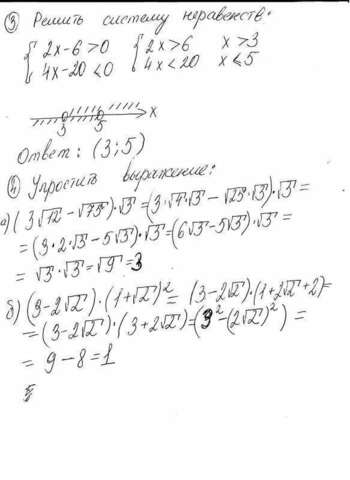 ③ Решить систему неравенств:
{ 2x-6>0 { 2x>6 x>3
{ 4x-20<0 { 4x<20 x<5
3 5 x
Ответ: (3;5)
④ Упростить выражение:
а) (3√12 - √75)·√3 = (3·√4·√3 - √25·√3)·√3 =
= (3·2√3 - 5√3)·√3 = (6√3 - 5√3)·√3 =
= √3·√3 = √9 = 3
б) (3-2√2)·(1+√2)² = (3-2√2)·(1+2√2+2) =
= (3-2√2)·(3+2√2) = (3² - (2√2)²) =
= 9-8 = 1